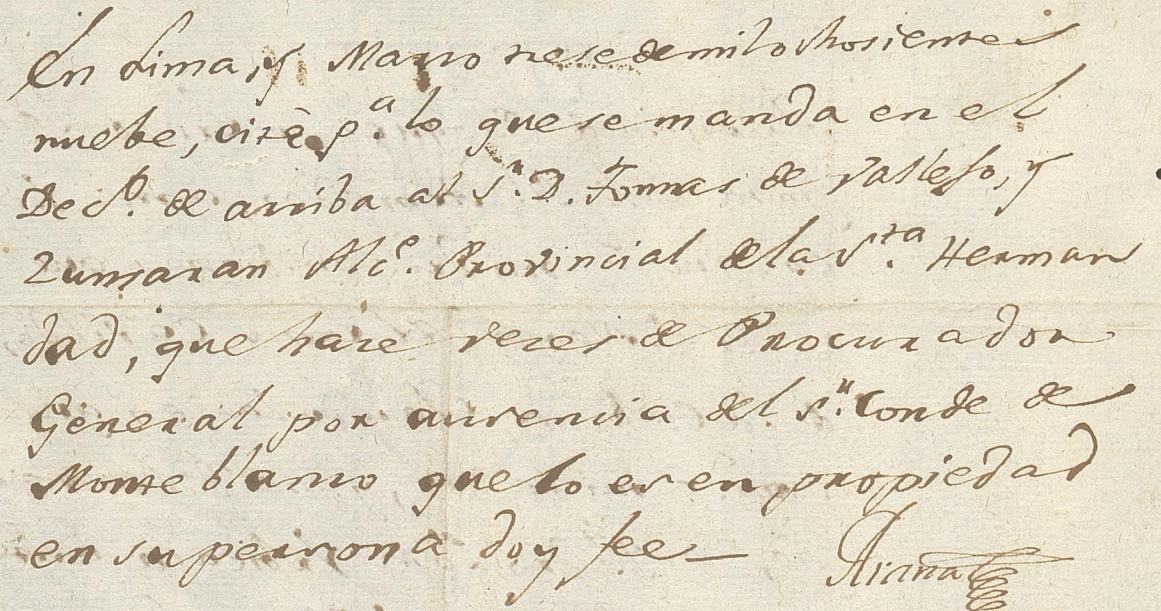 En Lima, y Marzo trese de mil ochosientos
nuebe, citè p.ª lo que se manda en el
Dec.to de arriba al S.r D. Tomas de Vallejo, y
Zumaran Alc.e Provincial de la S.ta Herman
dad, que hace veces de Procurador
General por ausencia del S.r Conde de
Monteblanco que lo es en propiedad
en su persona doy fee_
Arana